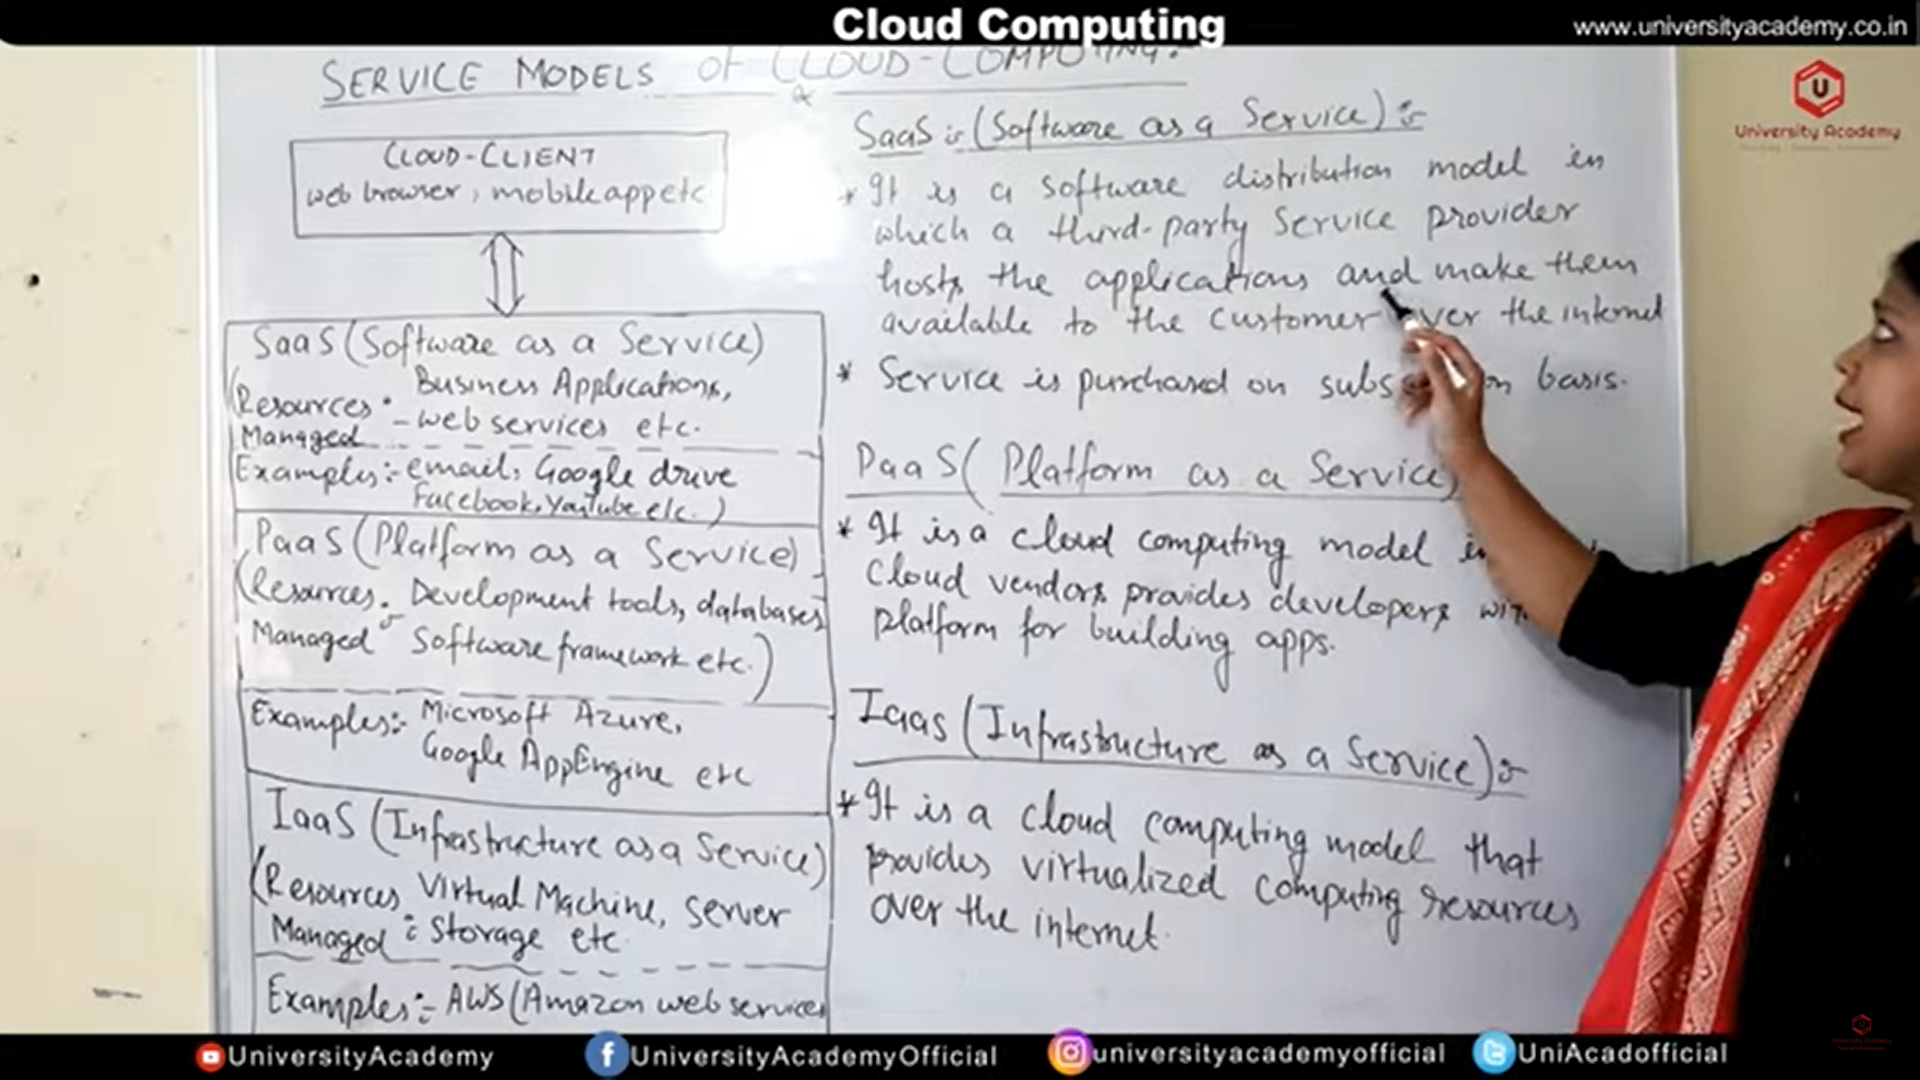 Cloud Computing
www.universityacademy.co.in
SERVICE MODELS Of CLOUD-COMPUTING:-
U
University Academy
CLOUD-CLIENT
web browser, mobile app etc
SaaS (Software as a Service)
Business Applications,
(Resources :
Managed - web services etc.
Examples:- email, Google drive
Facebook, Youtube etc.)
PaaS (Platform as a Service)
(Resources Development tools, databases
Managed :- Software framework etc.)
Examples:- Microsoft Azure,
Google AppEngine etc
IaaS (Infrastructure as a Service)
(Resources Virtual Machine, Server
Managed : Storage etc
Examples:- AWS (Amazon web services
SaaS :- (Software as a Service) :-
* It is a software distribution model in
which a third-party Service provider
hosts the applications and make them
available to the customer over the internet
* Service is purchased on basis.
PaaS ( Platform as a Service)
* It is a cloud computing model
cloud vendors provides developers
platform for building apps.
Iaas (Infrastructure as a Service) :-
* It is a cloud computing model that
provides virtualized computing resources
over the internet.
UniversityAcademy
UniversityAcademyOfficial
universityacademyofficial
UniAcadofficial